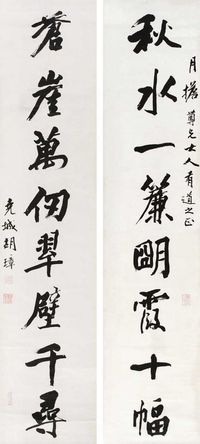 月尊兄大人有道之正
秋水一簾朙霞十幅
蒼崖萬仞翠壁千尋
堯城胡璋